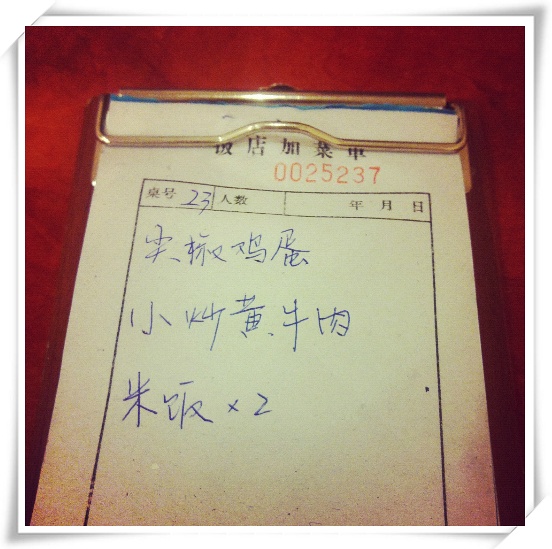 饭店加菜单
0025237
桌号 23 人数 年 月 日
尖椒鸡蛋
小炒黄牛肉
米饭 × 2